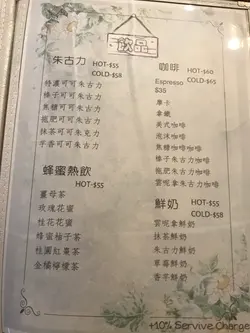 飲品
朱古力 HOT-$55
COLD-$58
特濃可可朱古力
榛子可可朱古力
焦糖可可朱古力
拖肥可可朱古力
抹茶可可朱克力
芋香可可朱古力
蜂蜜熱飲
HOT-$55
薑母茶
玫瑰花蜜
桂花花蜜
蜂蜜柚子茶
桂圓紅棗茶
金橘檸檬茶
咖啡 HOT-$60
COLD-$65
Espresso
$35
摩卡
拿鐵
美式咖啡
泡沫咖啡
焦糖咖啡
榛子朱古力咖啡
拖肥朱古力咖啡
雲呢拿朱古力咖啡
鮮奶 HOT-$55
COLD-$58
雲呢拿鮮奶
抹茶鮮奶
朱古力鮮奶
草莓鮮奶
香芋鮮奶
+10% Servive Charge